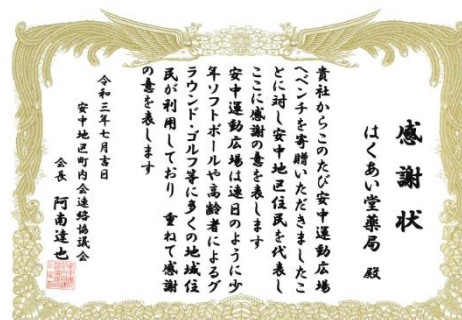 感謝状
はくあい堂薬局 殿
貴社からこのたび安中運動広場
へベンチを寄贈いただきましたこ
とに対し安中地区住民を代表し
ここに感謝の意を表します
安中運動広場は連日のように少
年ソフトボールや高齢者によるグ
ラウンド・ゴルフ等に多くの地域住
民が利用しており 重ねて感謝
の意を表します
令和三年七月吉日
安中地区町内会連絡協議会
会長 阿南達也